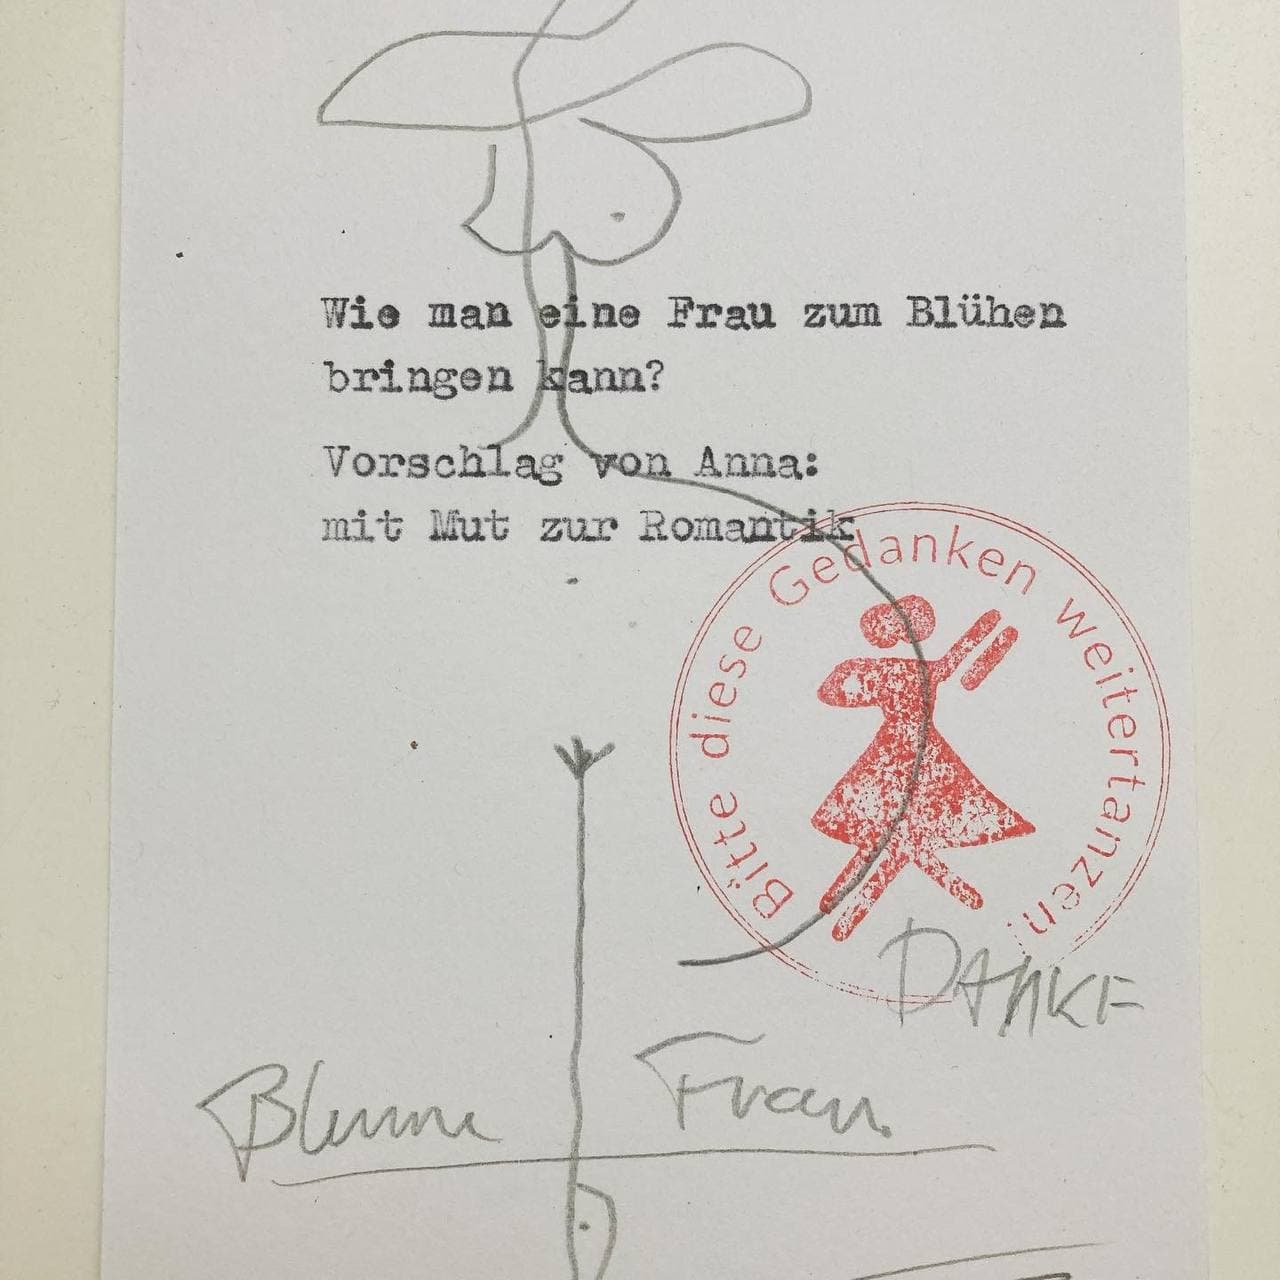 Wie man eine Frau zum Blühen
bringen kann?
Vorschlag von Anna:
mit Mut zur Romantik
Bitte diese Gedanken weitertanzen!
DANKE
Blume
Frau